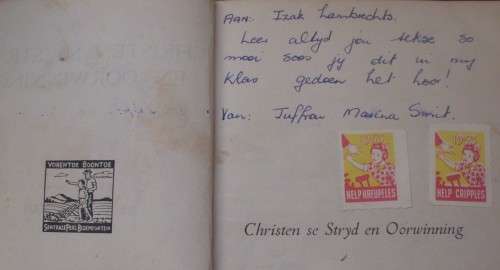 Aan: Izak Lambrechts.
Lees altyd jou tekse so
mooi soos jy dit in my
klas gedoen het hoor!
Van: Juffrou Smit.
VORENTOE BOONTOE
SENTRALE PERS, BLOEMFONTEIN
HELP KREUPELES
HELP CRIPPLES
Christen se Stryd en Oorwinning